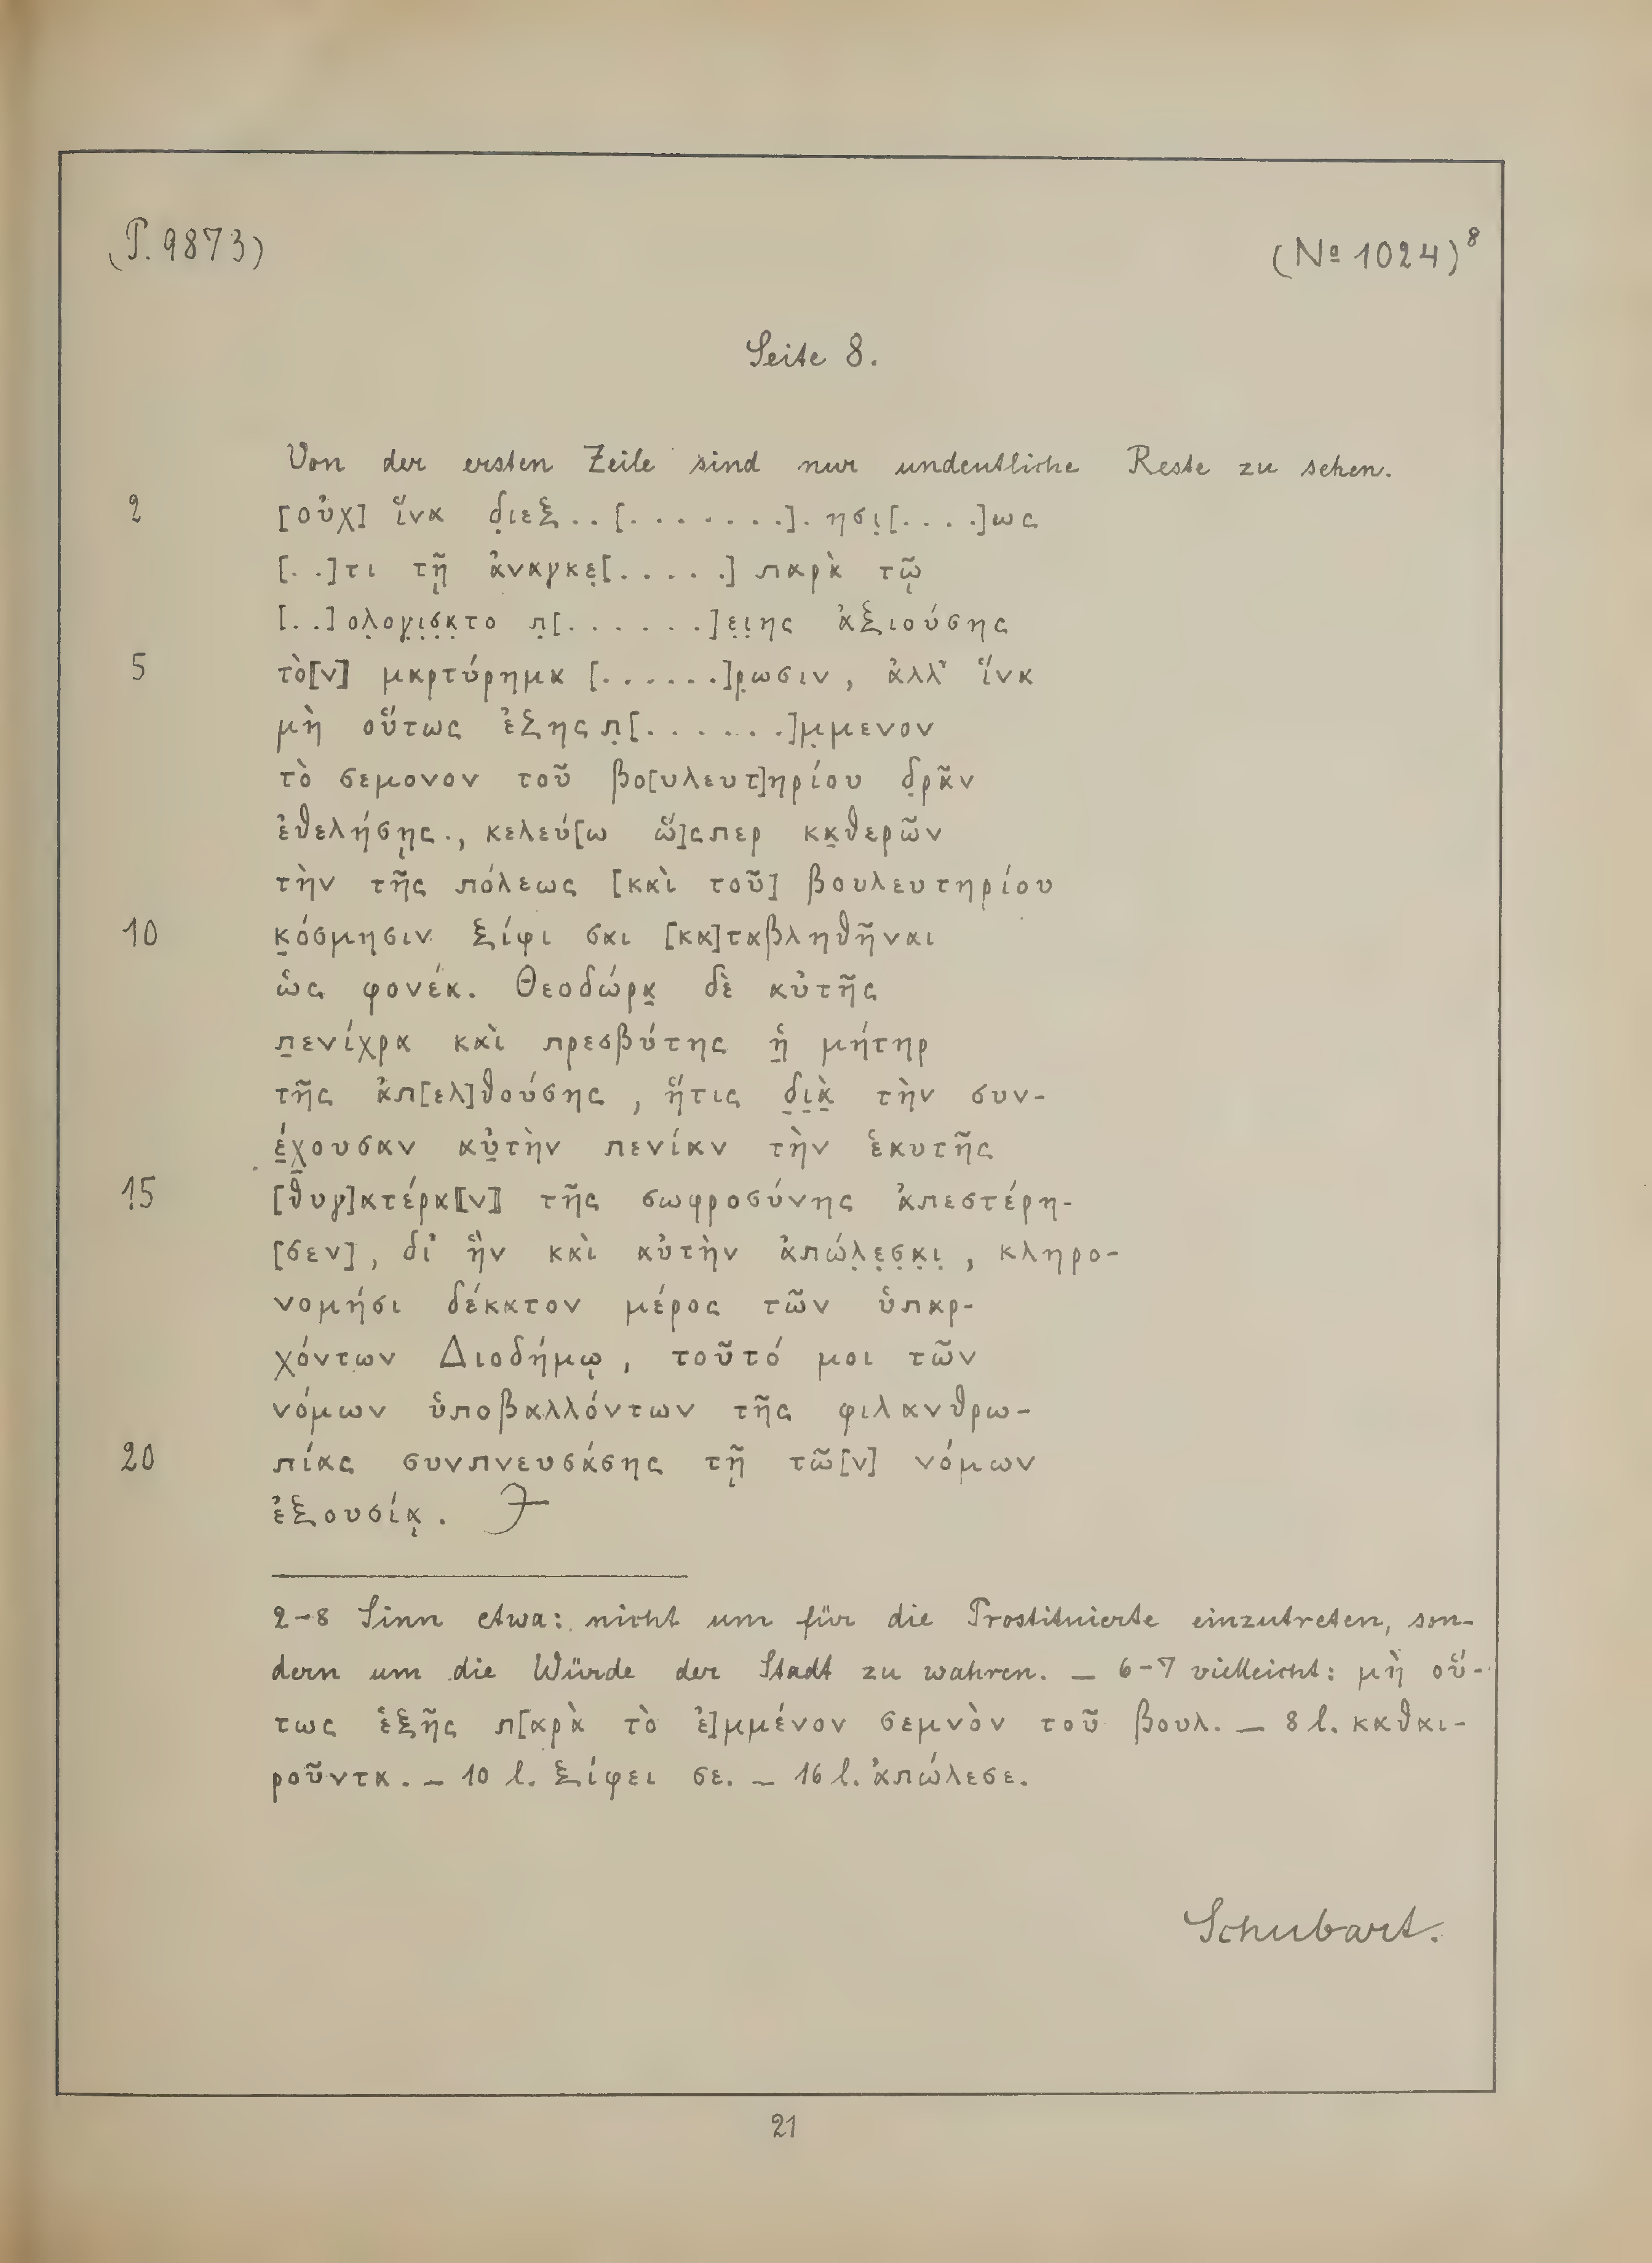 (P. 9873)
(Nº 1024)⁸
Seite 8.
Von der ersten Zeile sind nur undeutliche Reste zu sehen.
2 [οὐχ] ἵνα δ̣ιεξ..[.......]. ησι̣[....]ως
[..]τι τῇ ἀναγκε̣[.....] παρὰ τῷ
[..]ολ̣ογ̣ι̣σ̣α̣το π̣[......]ε̣ι̣ης ἀξιούσης
5 τὸ[ν] μαρτύρημα [......]ρ̣ωσιν, ἀλλ' ἵνα
μὴ οὕτως ἐξης π̣[.......]μ̣μενον
τὸ σεμονον τοῦ βο[υλευτ]ηρίου δ̣ρᾶν
ἐθελήσῃς., κελεύ[ω ὥ]σπερ κα̣θερῶν
τὴν τῆς πόλεως [καὶ τοῦ] βουλευτηρίου
10 κ̣όσμησιν ξίφι σαι [κα]ταβληθῆναι
ὡς φονέα. Θεοδώρα̣ δὲ αὐτῆς
π̣ενίχρα καὶ πρεσβύτης ἡ̣ μήτηρ
τῆς ἀπ[ελ]θούσης, ἥτις δ̣ι̣ὰ̣ τὴν συν-
έ̣χ̣ουσαν αὐ̣τὴν πενίαν τὴν ἑαυτῆς
15 [θυγ]ατέρα⟦ν⟧ τῆς σωφροσύνης ἀπεστέρη-
[σεν], δι' ἣν καὶ αὐτὴν ἀπώλ̣ε̣σ̣α̣ι̣, κληρο-
νομήσι δέκατον μέρος τῶν ὑπαρ-
χόντων Διοδήμῳ, τοῦτό μοι τῶν
νόμων ὑποβαλλόντων τῆς φιλανθρω-
20 πίας συνπνευσάσης τῇ τῶ[ν] νόμων
ἐξουσίᾳ.
2-8 Sinn etwa: nicht um für die Prostituierte einzutreten, son-
dern um die Würde der Stadt zu wahren. — 6-7 vielleicht: μὴ οὕ-
τως ἑξῆς π[αρὰ τὸ ἐ]μμένον σεμνὸν τοῦ βουλ. — 8 l. καθαι-
ροῦντα. — 10 l. ξίφει σε. — 16 l. ἀπώλεσε.
Schubart.
21